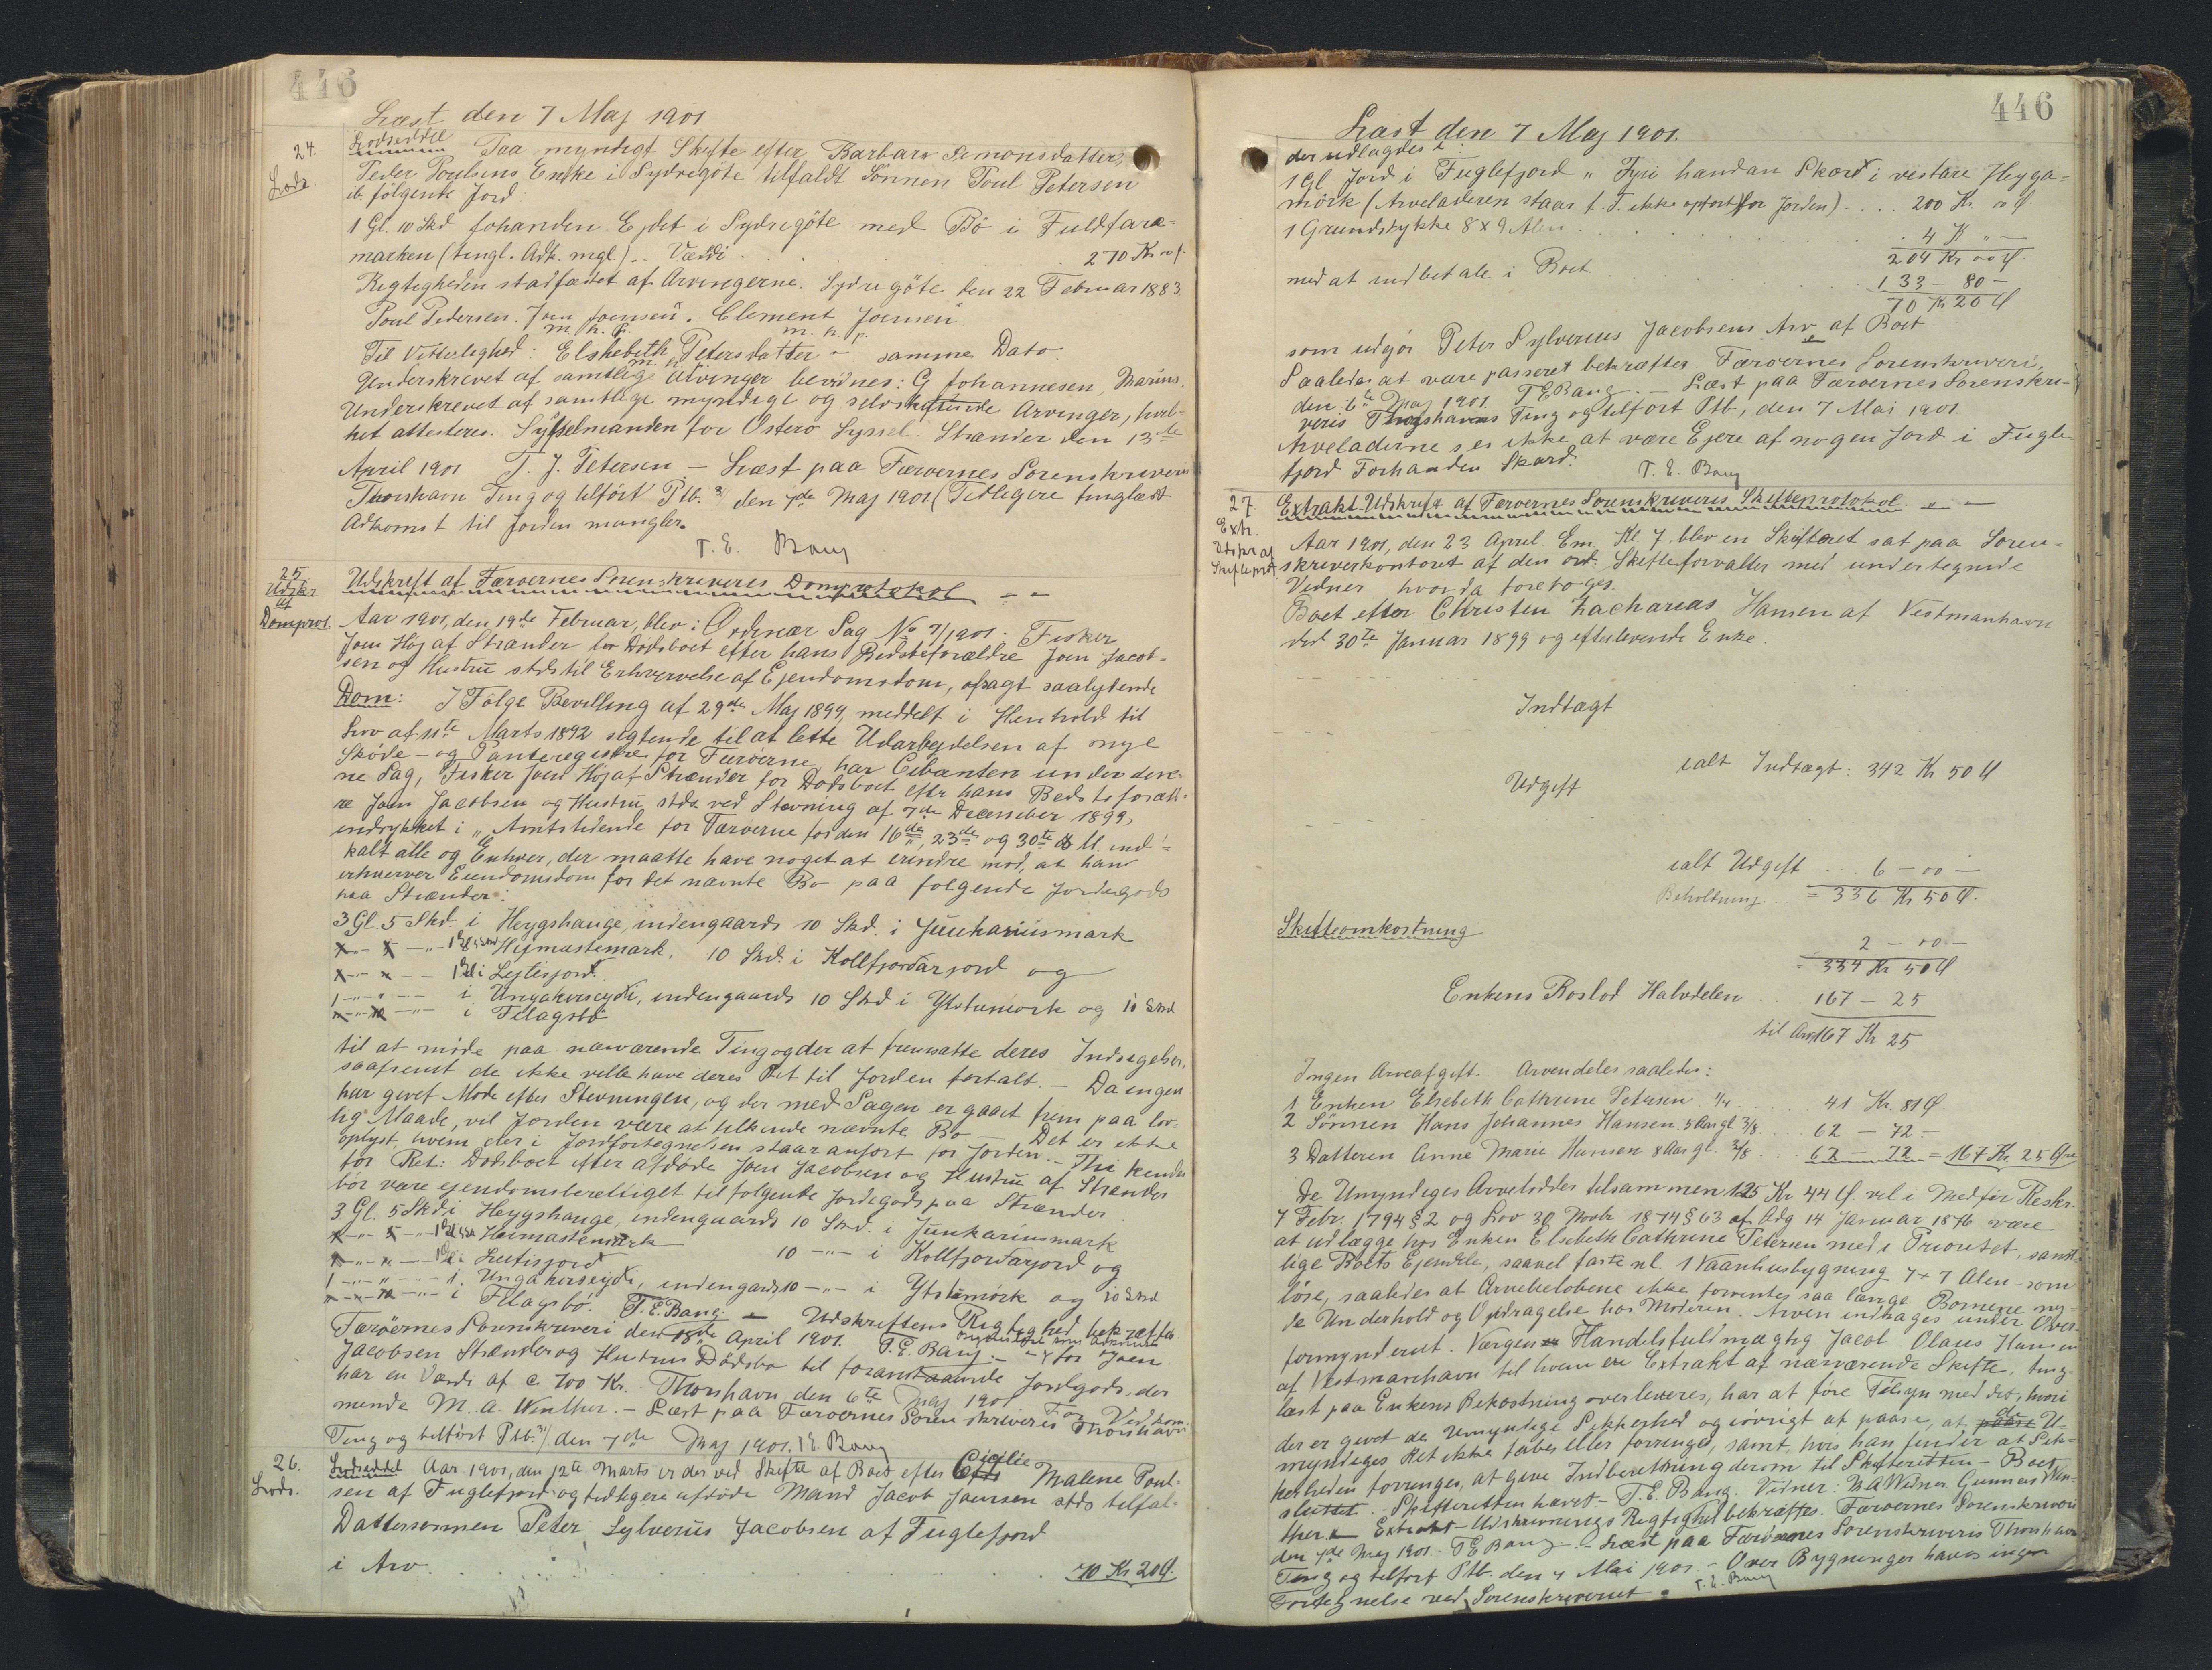 446
Læst den 7 Maj 1901
24.
Lods.
Lodseddel Paa myndigt Skifte efter Barbara Simonsdatter,
Peder Poulsens Enke i Sydregöte tilfaldt Sönnen Poul Petersen
ib. følgende Jord:
1 Gl. 10 Skd fohanden Ejdet i Sydregöte med Bö i Fuldfare=
marken (tingl. Adk. mgl.).. Værdi . . . 270 Kr
Rigtigheden stadfæstet af Arvingerne. Sydregöte den 22 Februar 1883
Poul Petersen. Joen Joensen. Clement Joensen
m. h. P. m. h. p.
Til Vitterlighed: Elsbebeth Petersdatter samme Dato.
Underskrevet af samtlige Arvinger bevidnes: G Johannesen, Marius.
Underskrevet af samtlige myndige og selvskiftende Arvinger, hvil-
ket attesteres. Sysselmanden for Österö Syssel. Strænder den 13de
April 1901 T. J. Petersen – Læst paa Færøernes Sorenskriveri
Thorshavn Ting og tilfört Ptb. den 7de Maj 1901 (Tidligere tinglæst
Adkomst til Jorden mangler.
T. E. Bang
25
Udskr
af
Domprot.
Udskrift af Færøernes Sorenskriveris Domprotokol
Aar 1901, den 19de Februar, blev i Ordinær Sag No 7/1901. Fisker
Joen Höj af Strænder for Dödsboet efter hans Bedsteforældre Joen Jacob-
sen og Hustru stds til Erhvervelse af Ejendomsdom, afsagt saalydende
Dom: I Følge Bevilling af 29de Maj 1899, meddelt i Henhold til
Lov af 11te Marts 1892 sigtende til at lette Udarbejdelsen af nye
Sköde- og Panteregistre for Færöerne, har Citanten under den-
ne Sag, Fisker Joen Höj af Strænder for Dödsboet efter hans Bedsteforæld-
re Joen Jacobsen og Hustru stds ved Stævning af 7de December 1899,
indrykket i "Amtstidende for Færøerne for den 16de, 23de og 30te d. M. ind-
kalt alle og Enhver, der maatte have noget at erindre mod, at han
erhverver Eiendomsdom for det nævnte Bo paa følgende Jordegods
paa Strænder:
3 Gl. 5 Skd. i Heygshauge, indengaards 10 Skd. i Juukariusmark
Hejmastemark, 10 Skd. i Kollfjordarjord og
i Lejtisjord
1 i Ungakvseydi, indengaards 10 Skd i Ytstumörk og 10 Skd
i Filagsbö
til at møde paa nærværende Ting og der at fremsætte deres Indsigelser,
saafremt de ikke ville have deres Ret til Jorden fortalt. – Da ingen
har givet Møde efter Stevningen, og der med Sagen er gaaet frem paa lov-
lig Maade, vil Jorden være at tilkende nævnte Bo – Det er ikke
oplyst, hvem der i Jordfortegnelsen staar anfört for Jorden. – Thi kendes
for Ret: Dödsboet efter afdöde Joen Jacobsen og Hustru af Strænder
bör være ejendomsberettiget til følgende Jordegods paa Strænder
3 Gl. 5 Skd i Heygshauge, indengaards 10 Skd. i Juukariusmark
Heimastemark 10 – i Kollfjordarjord og
Leitisjord
1 i. Ungakvseydi, indengards 10 – i Ytstumörk og 10 Skd
i Filagsbö. T. E. Bang. – Udskriftens Rigtighed bekræftes
Færöernes Sorenskriveri den 18de April 1901. T. E. Bang. – for Joen
Jacobsen Strænder og Hustrus Dödsbo til foranstaaende Jordgods, der
har en Værdi af c 700 Kr. Thorshavn, den 6te Maj 1901 For Vedkom-
mende M. A. Winther. – Læst paa Færøernes Sorenskriveris Thorshavn
Ting og tilfört Ptb. den 7de Maj 1901. T E Bang
26.
Lods.
Lodseddel Aar 1901, den 12te Marts er der ved Skifte af Boet efter Cicilie Malene Poul-
sen af Fuglefjord og tidligere afdöde Mand Jacob Joensen stds tilfal-
Dattersonnen Peter Sylverius Jacobsen af Fuglefjord
i Arv . . . 70 Kr 20 Ø.
446
Læst den 7 Maj 1901.
der udlagdes
1 Gl Jord i Fuglefjord " Fyri handan Skard i vestare Heyga=
mörk (Arveladeren staar f. T. ikke opfört for Jorden) . . . 200 Kr. " Ø.
1 Grundstykke 8 x 9 Alen . . . 4 K " —
204 Kr 00 Ø.
mod at indbetale i Boet . . . 133 – 80 –
70 Kr 20 Ø
som udgör Peter Sylverius Jacobsens Arv af Boet
Saaledes at være passeret bekræftes Færøernes Sorenskriveri,
den 6te Maj 1901. T E Bang. – Læst paa Færøernes Sorenskri-
veris Thorshavns Ting og tilfört Ptb, den 7 Mai 1901.
Arveladerne ses ikke at være Ejere af nogen Jord i Fugle
fjord Forhanden Skard. T. E. Bang
27.
Extr.
Udskr af
Skifteprot
Extrakt-Udskrift af Færøernes Sorenskriveris Skifteprotokol
Aar 1901, den 23 April. Em. Kl. 7. blev en Skifteret sat paa Soren-
skriverkontoret af den ord. Skifteforvalter med undertegnede
Vidner hvor da foretoges.
Boet efter Christen Zacharias Hansen af Vestmanhavn
död 30te Januar 1899 og efterlevende Enke.
Indtægt
ialt Indtægt: 342 Kr 50 Ø
Udgift
ialt Udgift . . . 6 – 00 –
Beholdning . . . = 336 Kr 50 Ø.
Skifteomkostning
2 – 00 –
= 334 Kr 50 Ø
Enkens Boslod Halvdelen . . . 167 – 25
til Arv 167 Kr 25
Ingen Arveafgift. Arven deles saaledes:
1 Enken Elsebeth Cathrine Petersen 1/4 . . . 41 Kr. 81 Ø.
2 Sönnen Hans Johannes Hansen 5 Aar gl. 3/8 . . . 62 – 72 –
3 Datteren Anne Marie Hansen 8 Aar gl. 3/8 . . . 62 – 72 = 167 Kr. 25 Øre
De Umyndiges Arvelodder tilsammen 125 Kr 44 Ø. vil i Medför Reskr.
7 Febr. 1794 § 2 og Lov 30 Novbr 1874 § 63 af Adg 14 Januar 1876 være
at udlægge hos Enken Elsebeth Cathrine Petersen med 1 Prioritet, samt-
lige Boets Ejendele, saavel faste nl. 1 Vaanhusbygning 7 x 7 Alen – som
löse, saaledes at Arvebelöbene ikke forrentes saa længe Börnene ny-
de Underhold og Opdragelse hos Moderen. Arven indtages under Over-
formynderiet. Værgen Handelsfuldmægtig Jacob Olaus Hansen
af Vestmanhavn til hvem en Extrakt af nærværende Skifte, ting-
læst paa Enkens Bekostning overleveres, har at före Tilsyn med det, hvori
der er givet de Umyndige Sikkerhed og iövrigt at paase, at de U-
myndiges Ret ikke tabes eller forringes, samt, hvis han finder at Sik-
kerheden forringes, at give Indberetning derom til Skifteretten – Boet
sluttet. – Skifteretten hævet – T. E. Bang. Vidner: M A Widner Gunnar Win-
ther – Extrakt-Udskrivnings Rigtighed bekræftes. Færøernes Sorenskriveri
den 7de Maj 1901. T E Bang – Læst paa Færöernes Sorenskriveris Thorshavn
Ting og tilfört Ptb. den 7 Mai 1901. – Over Bygninger haves ingen
Fortegnelse ved Sorenskriveriet. T. E. Bang